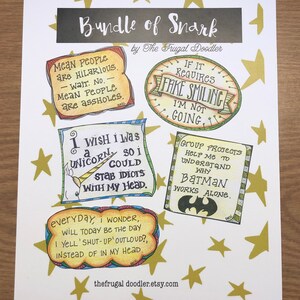 Bundle of Snark
by The Frugal Doodler
MEAN PEOPLE
ARE HILARIOUS.
— WAIT. NO. —
MEAN PEOPLE
ARE ASSHOLES.
IF IT
REQUIRES
FAKE SMILING
I'M NOT
GOING.
I WISH I WAS
A
UNICORN, SO I
COULD
STAB IDIOTS
WITH MY HEAD.
GROUP PROJECTS
HELP ME TO
UNDERSTAND
WHY
BATMAN
WORKS ALONE.
EVERYDAY, I WONDER,
WILL TODAY BE THE DAY
I YELL 'SHUT-UP' OUTLOUD?,
INSTEAD OF IN MY HEAD.
thefrugal doodler.etsy.com